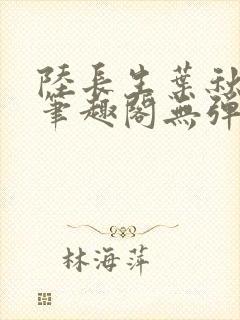 陸長生葉秋
筆趣閣無彈
林海萍